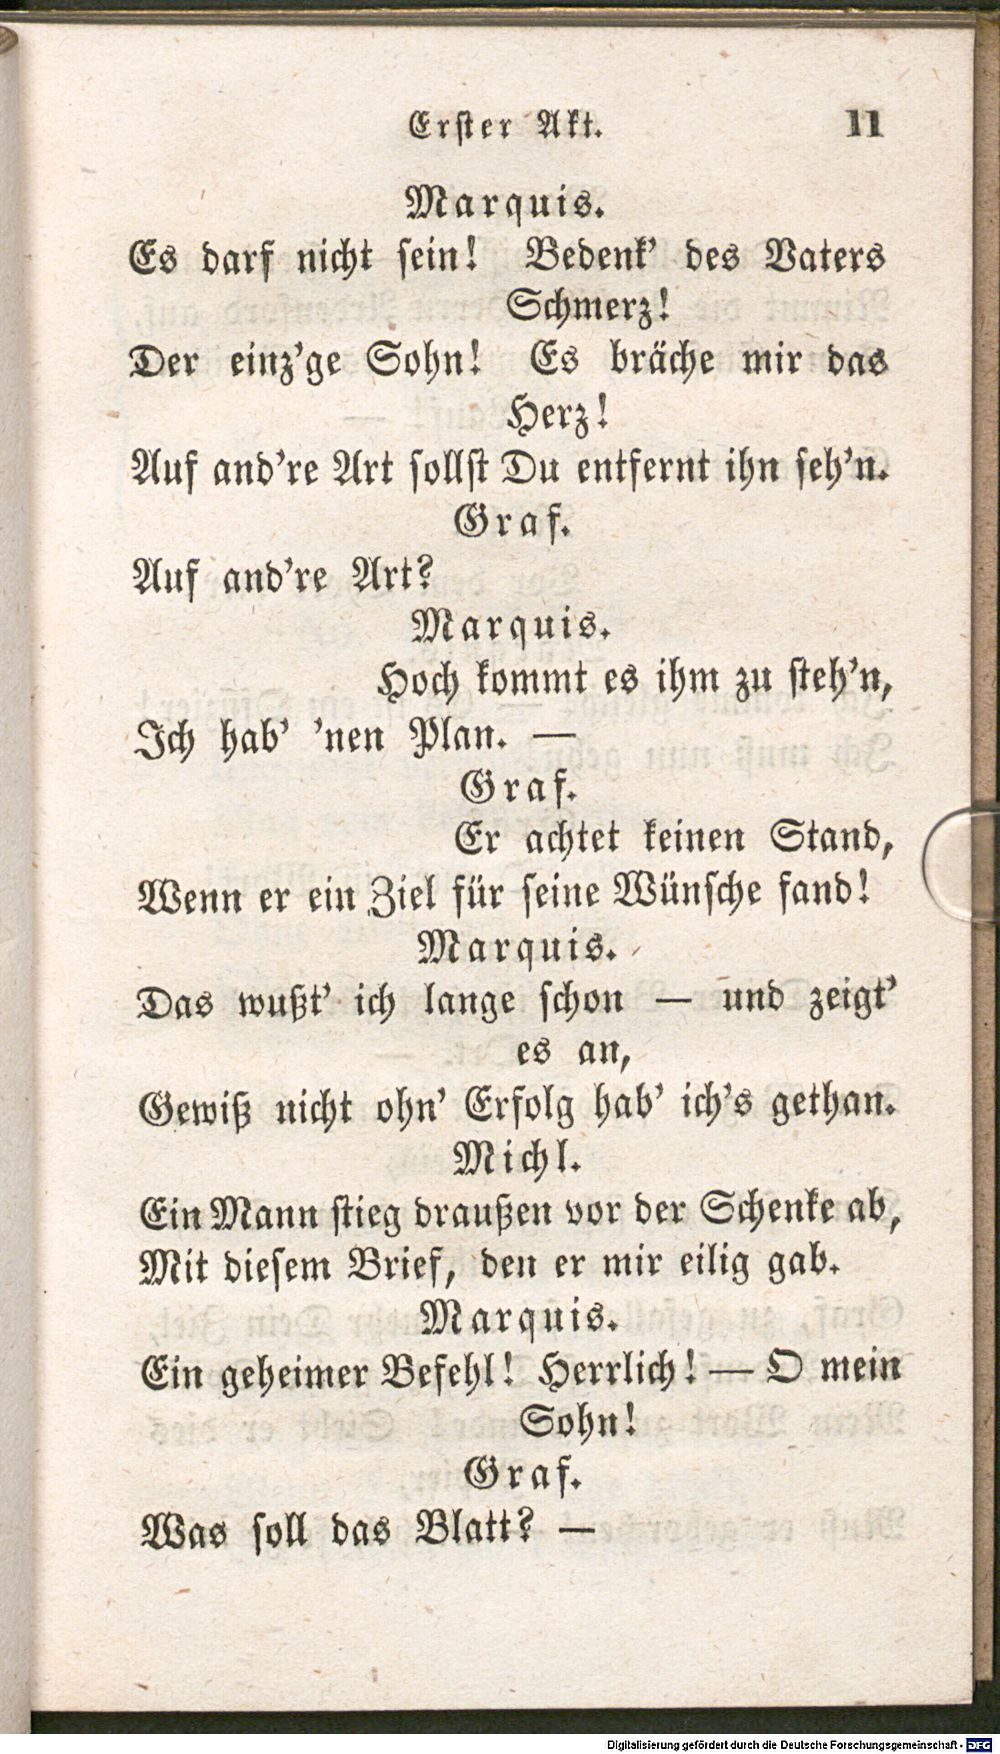 Erster Akt. 11
Marquis.
Es darf nicht sein! Bedenk' des Vaters
Schmerz!
Der einz'ge Sohn! Es bräche mir das
Herz!
Auf and're Art sollst Du entfernt ihn seh'n.
Graf.
Auf and're Art?
Marquis.
Hoch kommt es ihm zu steh'n,
Ich hab' 'nen Plan. —
Graf.
Er achtet keinen Stand,
Wenn er ein Ziel für seine Wünsche fand!
Marquis.
Das wußt' ich lange schon — und zeigt'
es an,
Gewiß nicht ohn' Erfolg hab' ich's gethan.
Michl.
Ein Mann stieg draußen vor der Schenke ab,
Mit diesem Brief, den er mir eilig gab.
Marquis.
Ein geheimer Befehl! Herrlich! — O mein
Sohn!
Graf.
Was soll das Blatt? —
Digitalisierung gefördert durch die Deutsche Forschungsgemeinschaft - DFG